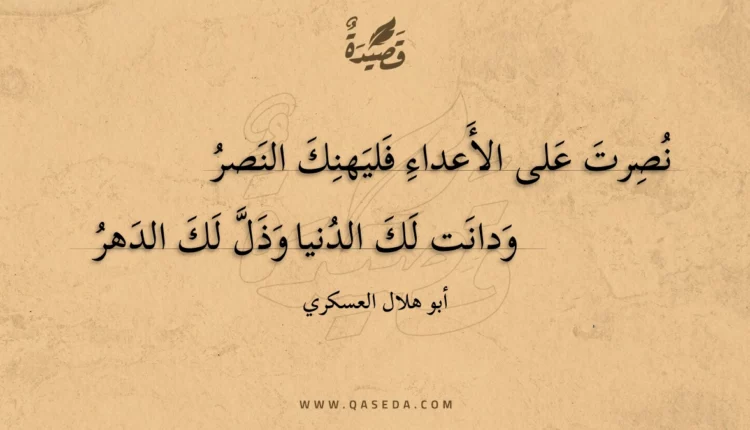 قَصِيدَةٌ
نُصِرتَ عَلى الأَعداءِ فَليَهنِكَ النَصرُ
وَدانَت لَكَ الدُنيا وَذَلَّ لَكَ الدَهرُ
أبو هلال العسكري
WWW.QASEDA.COM